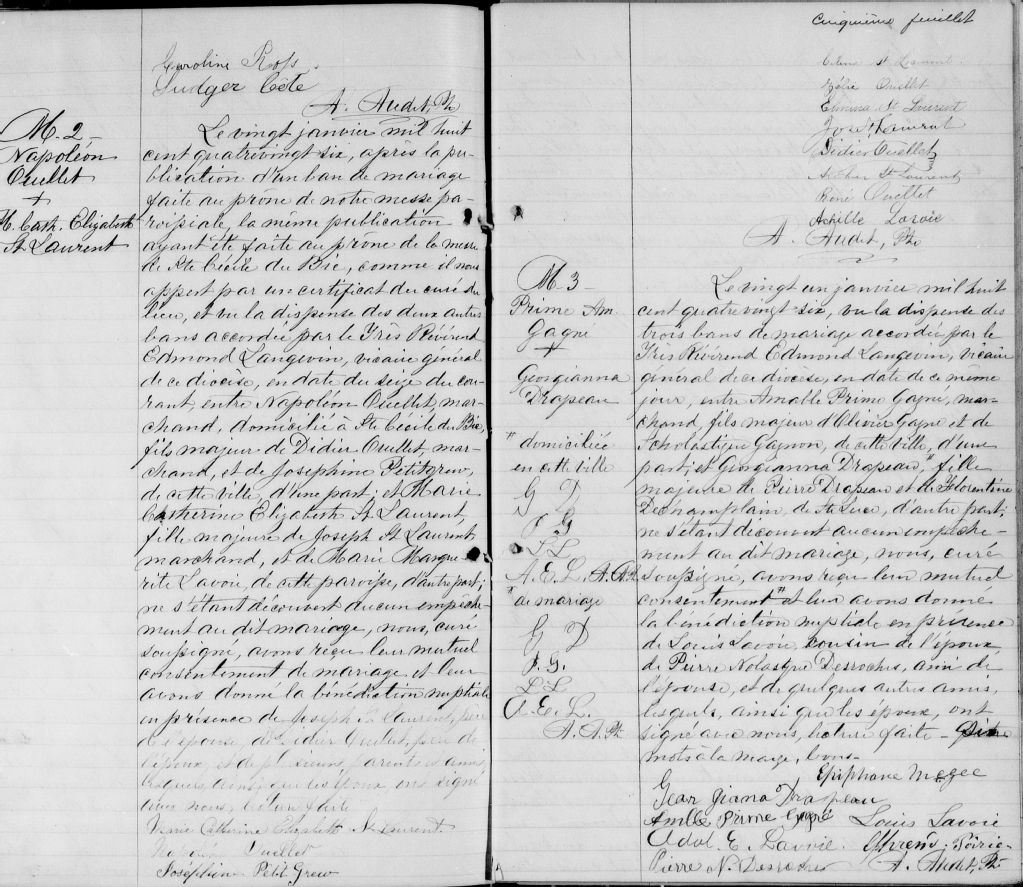 Caroline Ross.
Ludger Côté
A. Audet, Ptre
M. 2 -
Napoléon
Ouellet
+
M. Cath. Elizabeth
St Laurent
Le vingt janvier mil huit
cent quatrevingt six, après la pu-
blication d'un ban de mariage
faite au prône de notre messe pa-
roissiale, la même publication
ayant été faite au prône de la messe
de Ste Cécile du Bic, comme il nous
appert par un certificat du curé du
lieu, et vu la dispense des deux autres
bans accordée par le Très Révérend
Edmond Langevin, vicaire général
de ce diocèse, en date du seize du cou-
rant, entre Napoléon Ouellet, mar-
chand, domicilié à Ste Cécile du Bic,
fils majeur de Didier Ouellet, mar-
chand, et de Josephine Petitgrew,
de cette ville, d'une part; et Marie
Catherine Elizabeth St Laurent,
fille majeure de Joseph St Laurent,
marchand, et de Marie Margue-
rite Lavoie, de cette paroisse, d'autre part;
ne s'étant découvert aucun empêche-
ment au dit mariage, nous, curé
soussigné, avons reçu leur mutuel
consentement de mariage et leur
avons donné la bénédiction nuptiale
en présence de Joseph St Laurent, père
de l'épouse, de Didier Ouellet, père de
l'époux et de plusieurs parents et amis,
lesquels, ainsi que les époux, ont signé
avec nous, lecture faite
Marie Catherine Elizabeth St Laurent
Napoléon Ouellet
Josephin Petit Grew
Cinquième feuillet
St Laurent
Ouellet
Elmina St Laurent
Jos. St Laurent
Didier Ouellet
Arthur St Laurent
René Ouellet
Achille Lavoie
A. Audet, Ptre
M 3 -
Prime Am.
Gagné
+
Georgianna
Drapeau
# domiciliée
en cette ville
G D
P G
L L
A. E. L. A. A. Pt.
# de mariage
G D
P. G.
L L
A. E. L.
A. A. Pt.
Le vingt un janvier mil huit
cent quatrevingt six, vu la dispense des
trois bans de mariage accordée par le
Très Révérend Edmond Langevin, vicaire
général de ce diocèse, en date de ce même
jour, entre Amable Prime Gagné, mar-
chand, fils majeur d'Olivier Gagné et de
Scholastique Gagnon, de cette ville, d'une
part; et Georgianna Drapeau, # fille
majeure de Pierre Drapeau et de Florentine
Dechamplain, de Ste Luce, d'autre part;
ne s'étant découvert aucun empêche-
ment au dit mariage, nous, curé
soussigné, avons reçu leur mutuel
consentement # et leur avons donné
la bénédiction nuptiale en présence
de Louis Lavoie, cousin de l'époux,
de Pierre Nolasque Desroches, ami de
l'épouse, et de quelques autres amis,
lesquels, ainsi que les époux, ont
signé avec nous, lecture faite -
mots à la marge, bons -
Epiphane Magee
Gear giana Drapeau
Amble Prime Gagné Louis Lavoie
Adol. E. Lavoie
Pierre N. Desroches A. Audet, Pt.